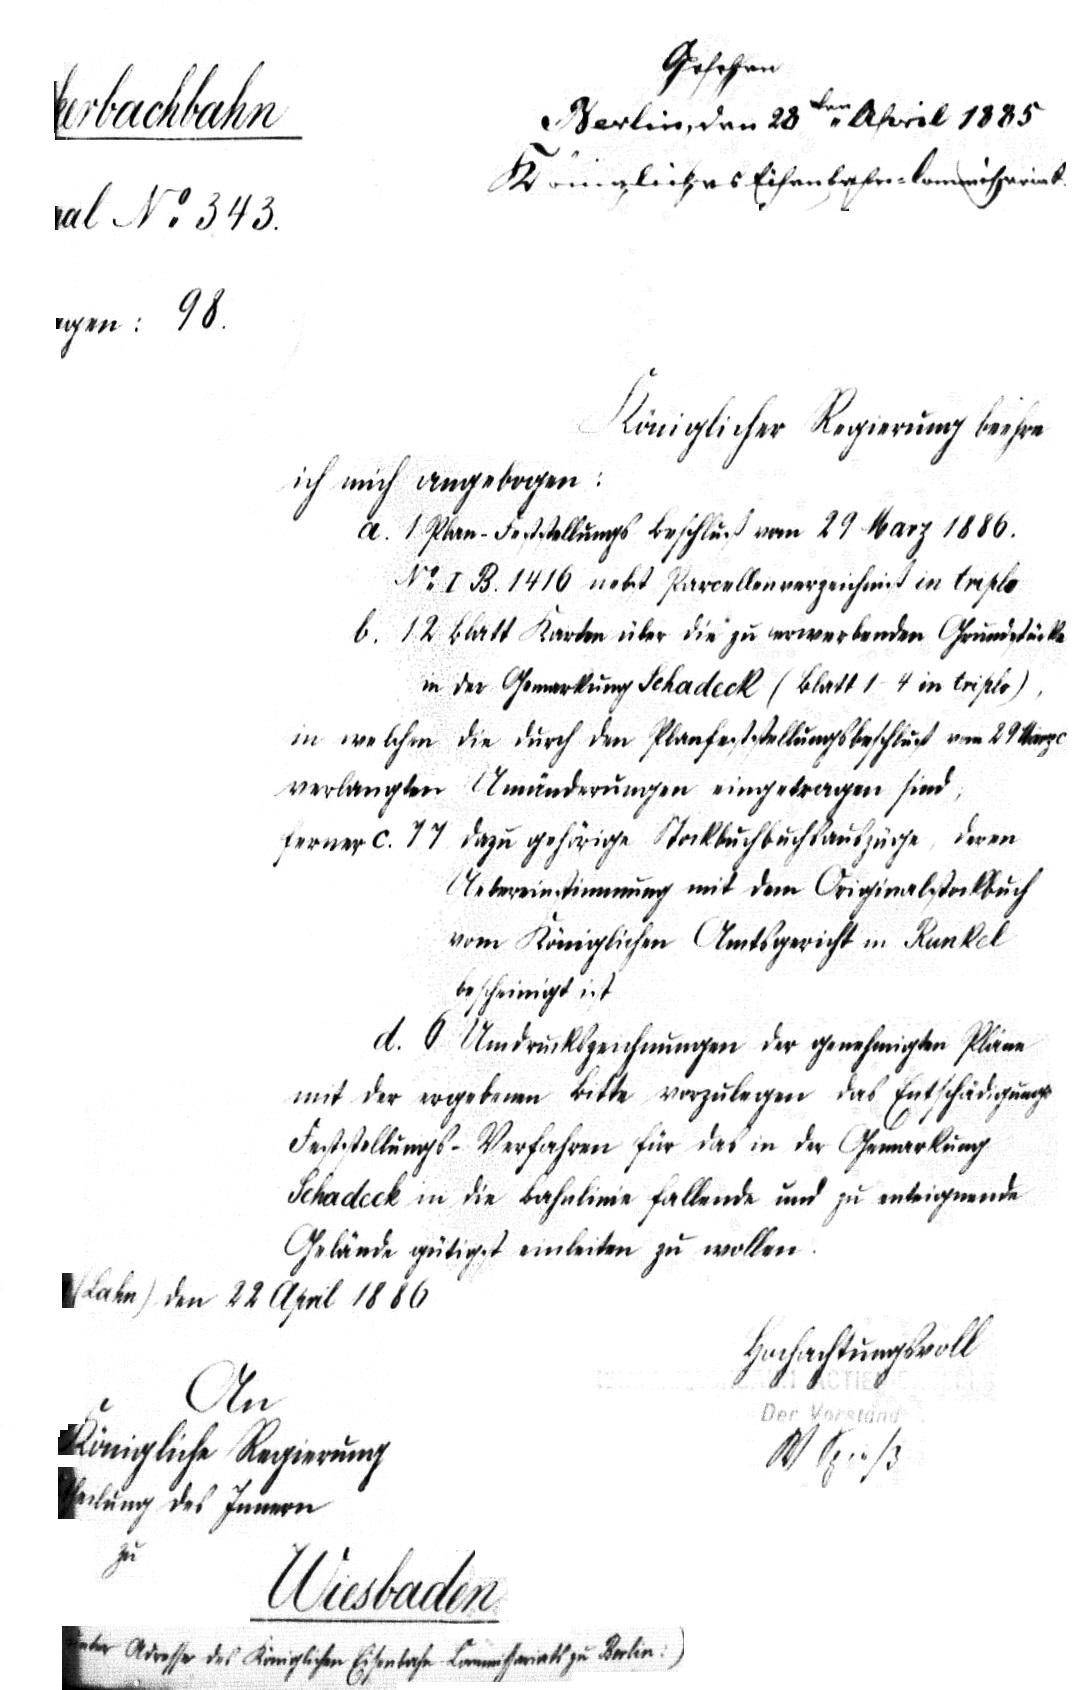 Gesehen
Berlin, den 28ten April 1885
Königliches Eisenbahn-Commissariat.
kerbachbahn
nal No. 343.
agen: 98.
Königlicher Regierung beehre
ich mich angebogen:
a. 1 Plan-Feststellungs Beschluß vom 29 März 1886.
No. I B. 1416 nebst Parcellenverzeichniß in triplo
b. 12 Blatt Karten über die zu erwerbenden Grundstücke
in der Gemarkung Schadeck (Blatt 1-4 in triplo),
in welchen die durch den Planfeststellungsbeschluß vom 29 März c
verlangten Umänderungen eingetragen sind,
ferner c. 77 dazu gehörige Stockbuchbuchsauszüge, deren
Uebereinstimmung mit dem Originalstockbuch
vom Königlichen Amtsgericht in Runkel
bescheinigt ist
d. 6 Umdruckszeichnungen der genehmigten Pläne
mit der ergebenen Bitte vorzulegen das Entschädigungs
Feststellungs-Verfahren für das in der Gemarkung
Schadeck in die Bahnlinie fallende und zu enteignende
Gelände gütigst einleiten zu wollen.
(Lahn) den 22 April 1886
Hochachtungsvoll
Der Vorstand
W Spieß
An
Königliche Regierung
theilung des Innern
zu
Wiesbaden
unter Adresse des Königlichen Eisenbahn Commissariats zu Berlin:)